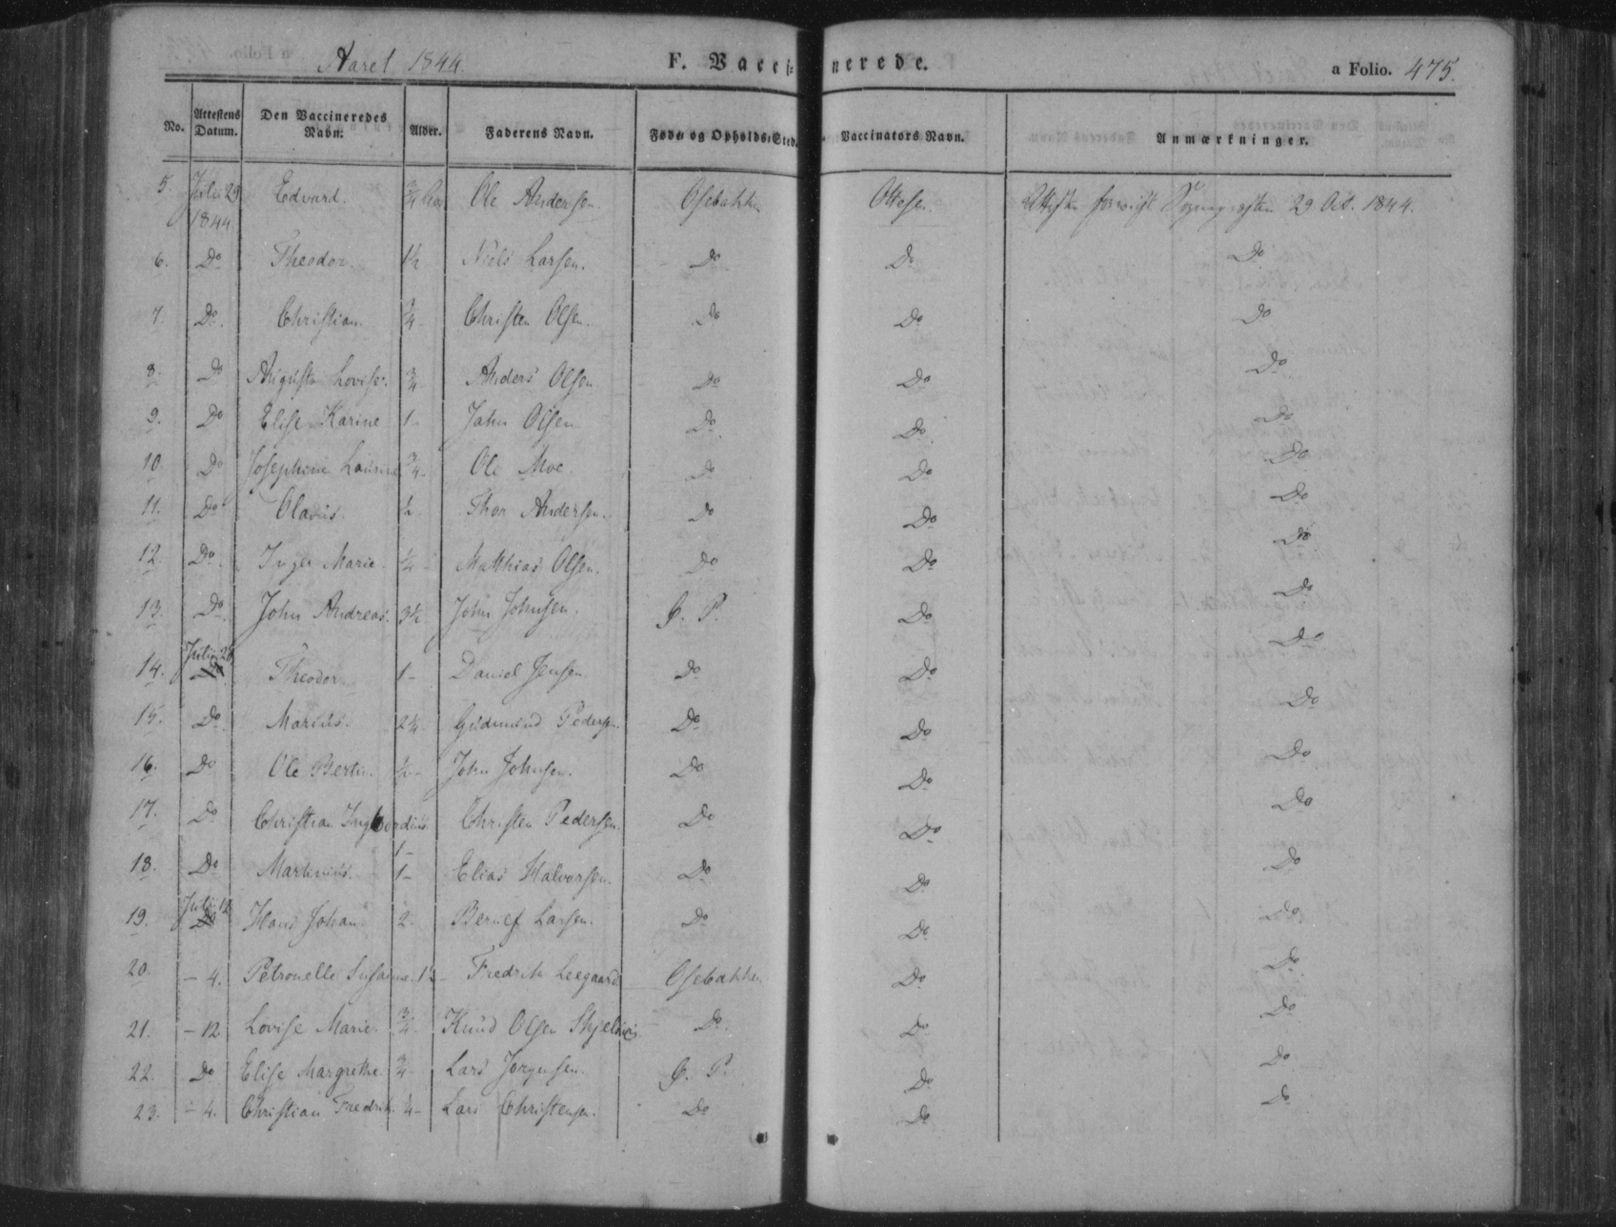 Aaret 1844. F. Vaccinerede. a Folio. 475.
No. Attestens Datum. Den Vaccineredes Navn. Alder. Faderens Navn. Føde- og Opholds-Sted. Vaccinators Navn. Anmærkninger.
5. Juli 29 1844 Edvard. 3/4 Aar Ole Andersen. Osebakken Ottesen. 29 Oct. 1844.
6. Do Theodor. 1 1/2 Niels Larsen. Do Do Do
7. Do Christian. 3/4 Christen Olsen. Do Do Do
8. Do Augusta Lovise. 3/4 Anders Olsen Do Do Do
9. Do Elise Karine 1 - John Olsen Do Do Do
10. Do Josephine 3/4 - Ole Moe. Do Do Do
11. Do Olavus. 1/2 Thor Andersen. Do Do Do
12. Do Inger Marie. 1/4 Matthias Olsen. Do Do Do
13. Do John Andreas. 3 1/2 John Johnsen. G. P. Do Do
14. Theodor. 1 - Daniel Jensen Do Do Do
15. Do Marius. 2 1/4 Gudmund Pedersen. Do Do Do
16. Do Ole Bertin. 1/2 - John Johnsen. Do Do Do
17. Do Christian 1 - Christen Pedersen. Do Do Do
18. Do Martinius. 1 - Elias Halvorsen. Do Do Do
19. Juli 12 Hans Johan 2 - Larsen. Do Do Do
20. - 4. Petronelle Susanne. 1 1/2 - Fredrik Leegaard Osebakken. Do Do
21. - 12 Lovise Marie. 3/4 - Knud Olsen Do. Do Do
22. Do Elise Margrethe. 3/4 - Lars Jørgensen. G. P. Do Do
23. - 4. Christian Fredrik. 1/4 - Lars Christensen. Do Do Do